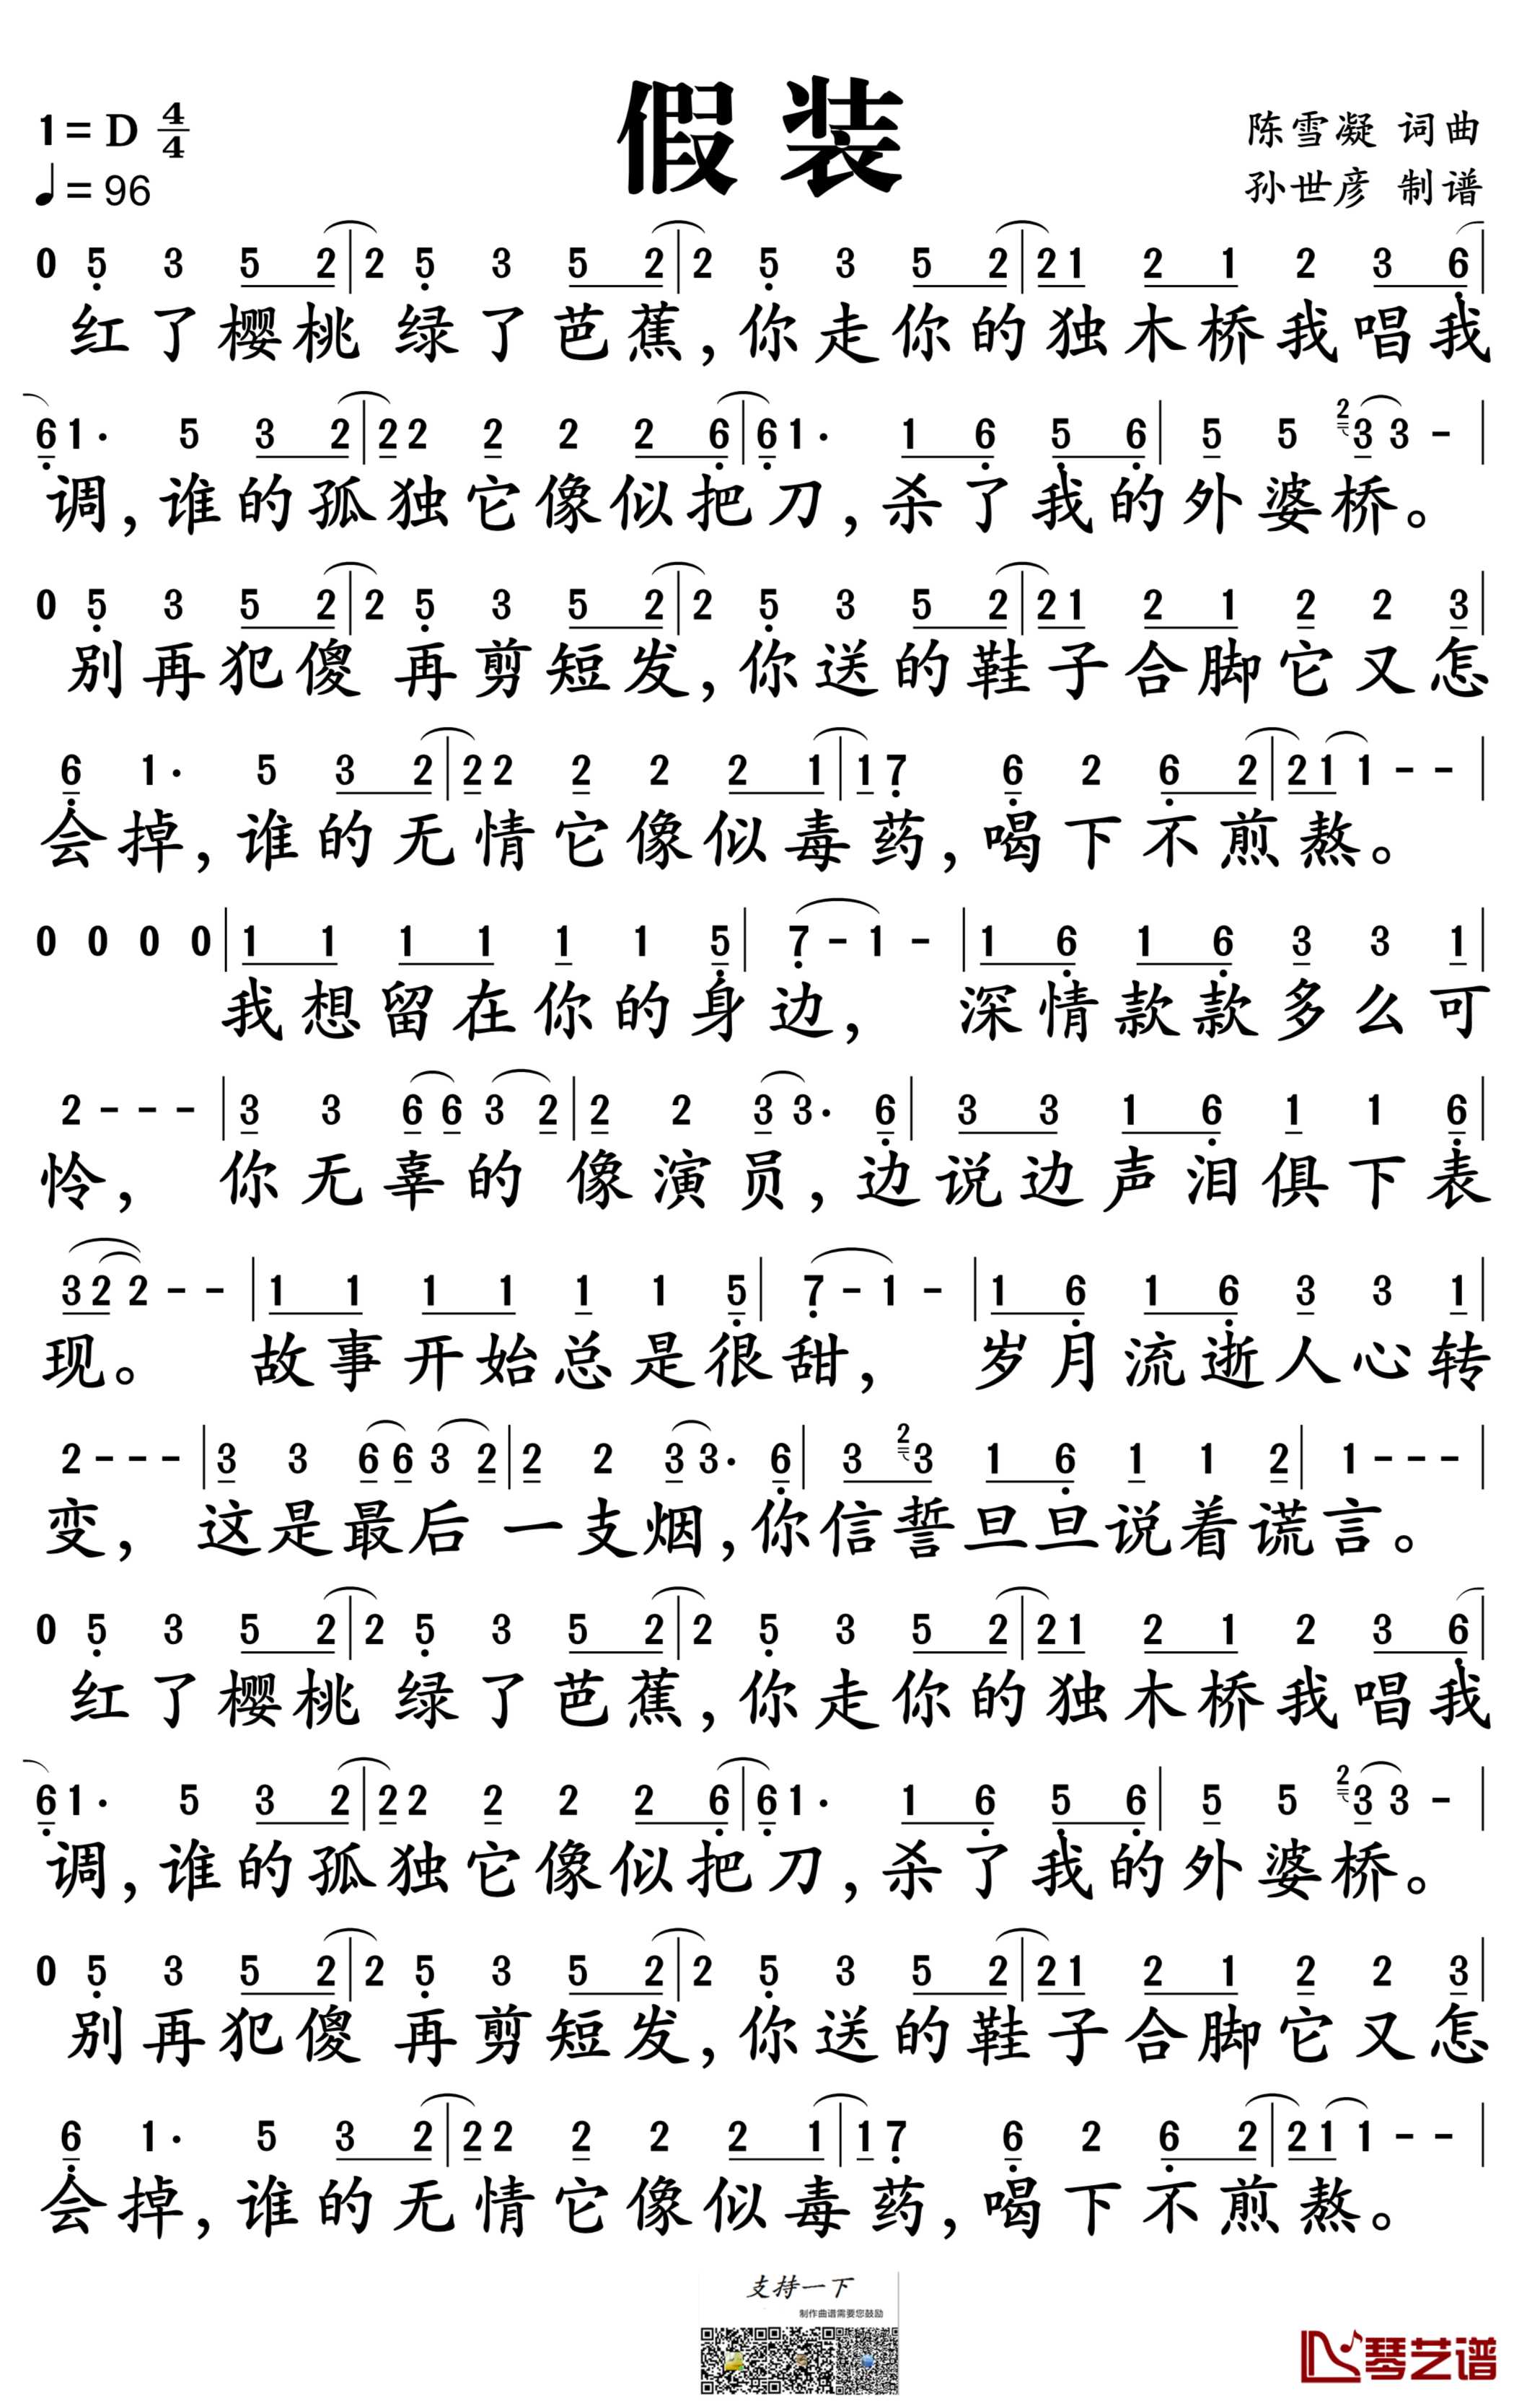 假装
1=D 4/4
♩=96
陈雪凝 词曲
孙世彦 制谱
0 5̣ 3 5 2|2 5̣ 3 5 2|2 5̣ 3 5 2|2 1 2 1 2 3 6̣|
红了樱桃 绿了芭蕉,你走你的独木桥我唱我
6̣ 1· 5 3 2|2 2 2 2 2 6̣|6̣ 1· 1 6̣ 5̣ 6̣|5 5 2 3 3 -|
调,谁的孤独它像似把刀,杀了我的外婆桥。
0 5̣ 3 5 2|2 5̣ 3 5 2|2 5̣ 3 5 2|2 1 2 1 2 2 3|
别再犯傻 再剪短发,你送的鞋子合脚它又怎
6̣ 1· 5 3 2|2 2 2 2 2 1|1 7̣ 6̣ 2 6̣ 2|2 1 1 - -|
会掉,谁的无情它像似毒药,喝下不煎熬。
0 0 0 0|1 1 1 1 1 1 5̣|7̣ - 1 -|1 6̣ 1 6̣ 3 3 1|
我想留在你的身边, 深情款款多么可
2 - - -|3 3 6 6 3 2|2 2 3 3· 6̣|3 3 1 6̣ 1 1 6̣|
怜, 你无辜的 像演员,边说边声泪俱下表
3 2 2 - -|1 1 1 1 1 1 5̣|7̣ - 1 -|1 6̣ 1 6̣ 3 3 1|
现。 故事开始总是很甜, 岁月流逝人心转
2 - - -|3 3 6 6 3 2|2 2 3 3· 6̣|3 2 3 1 6̣ 1 1 2|1 - - -|
变, 这是最后 一支烟,你信誓旦旦说着谎言。
0 5̣ 3 5 2|2 5̣ 3 5 2|2 5̣ 3 5 2|2 1 2 1 2 3 6̣|
红了樱桃 绿了芭蕉,你走你的独木桥我唱我
6̣ 1· 5 3 2|2 2 2 2 2 6̣|6̣ 1· 1 6̣ 5̣ 6̣|5 5 2 3 3 -|
调,谁的孤独它像似把刀,杀了我的外婆桥。
0 5̣ 3 5 2|2 5̣ 3 5 2|2 5̣ 3 5 2|2 1 2 1 2 2 3|
别再犯傻 再剪短发,你送的鞋子合脚它又怎
6̣ 1· 5 3 2|2 2 2 2 2 1|1 7̣ 6̣ 2 6̣ 2|2 1 1 - -|
会掉,谁的无情它像似毒药,喝下不煎熬。
支持一下
制作曲谱需要您鼓励
琴艺谱